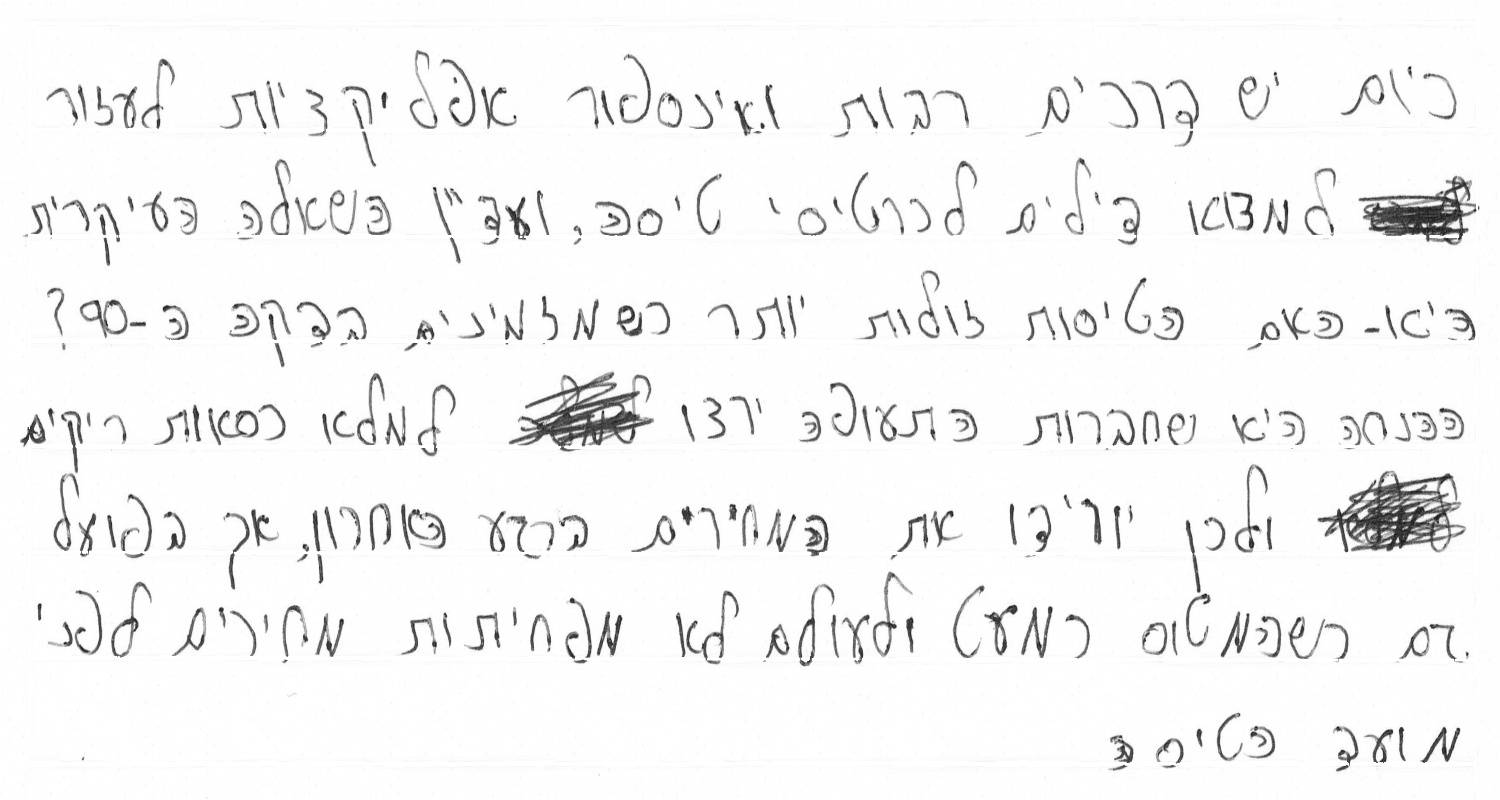 כיום יש דרכים רבות ואינספור אפליקציות לעזור
למצוא דילים לכרטיסי טיסה, ועדיין השאלה העיקרית
היא- האם הטיסות זולות יותר כשמזמינים בדקה ה-90?
ההנחה היא שחברות התעופה ירצו למלא כסאות ריקים
ולכן יורידו את המחירים ברגע האחרון, אך בפועל
גם כשהמטוס כמעט ולעולם לא מפחיתות מחירים לפני
מועד הטיסה